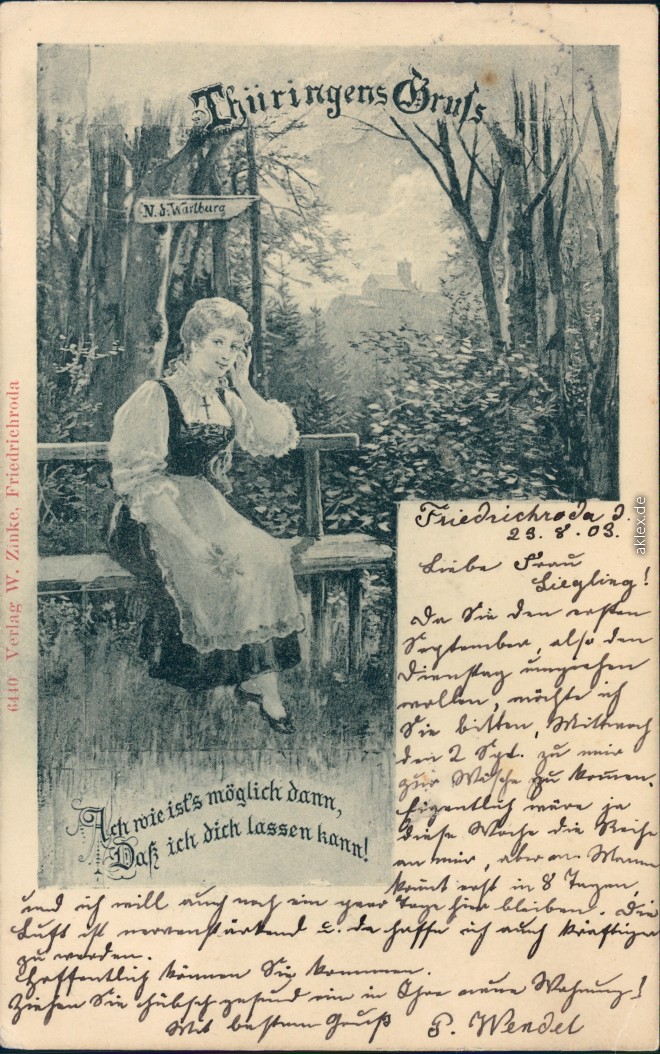 Thüringens Gruſs
N. d. Wartburg
6440 Verlag W. Zinke, Friedrichroda
aklex.de
Ach wie ist's möglich dann,
Daß ich dich lassen kann!
Friedrichroda d.
23.8.03.
Liebe Frau
Liegling!
Da Sie den ersten
September, also den
Dienstag umziehen
wollen, möchte ich
Sie bitten, Mittwoch
den 2 Spt. zu mir
zur Wäsche zu kommen.
Eigentlich wäre ja
diese Woche die Reihe
an mir, aber mein Mann
kommt erst in 8 Tagen,
und ich will auch noch ein paar Tage hier bleiben. Die
Luft ist nervenstärkend u. da hoffe ich auch kräftiger
zu werden.
Hoffentlich können Sie kommen.
Ziehen Sie hübsch gesund ein in Ihre neue Wohnung!
Mit bestem Gruß P. Wendel